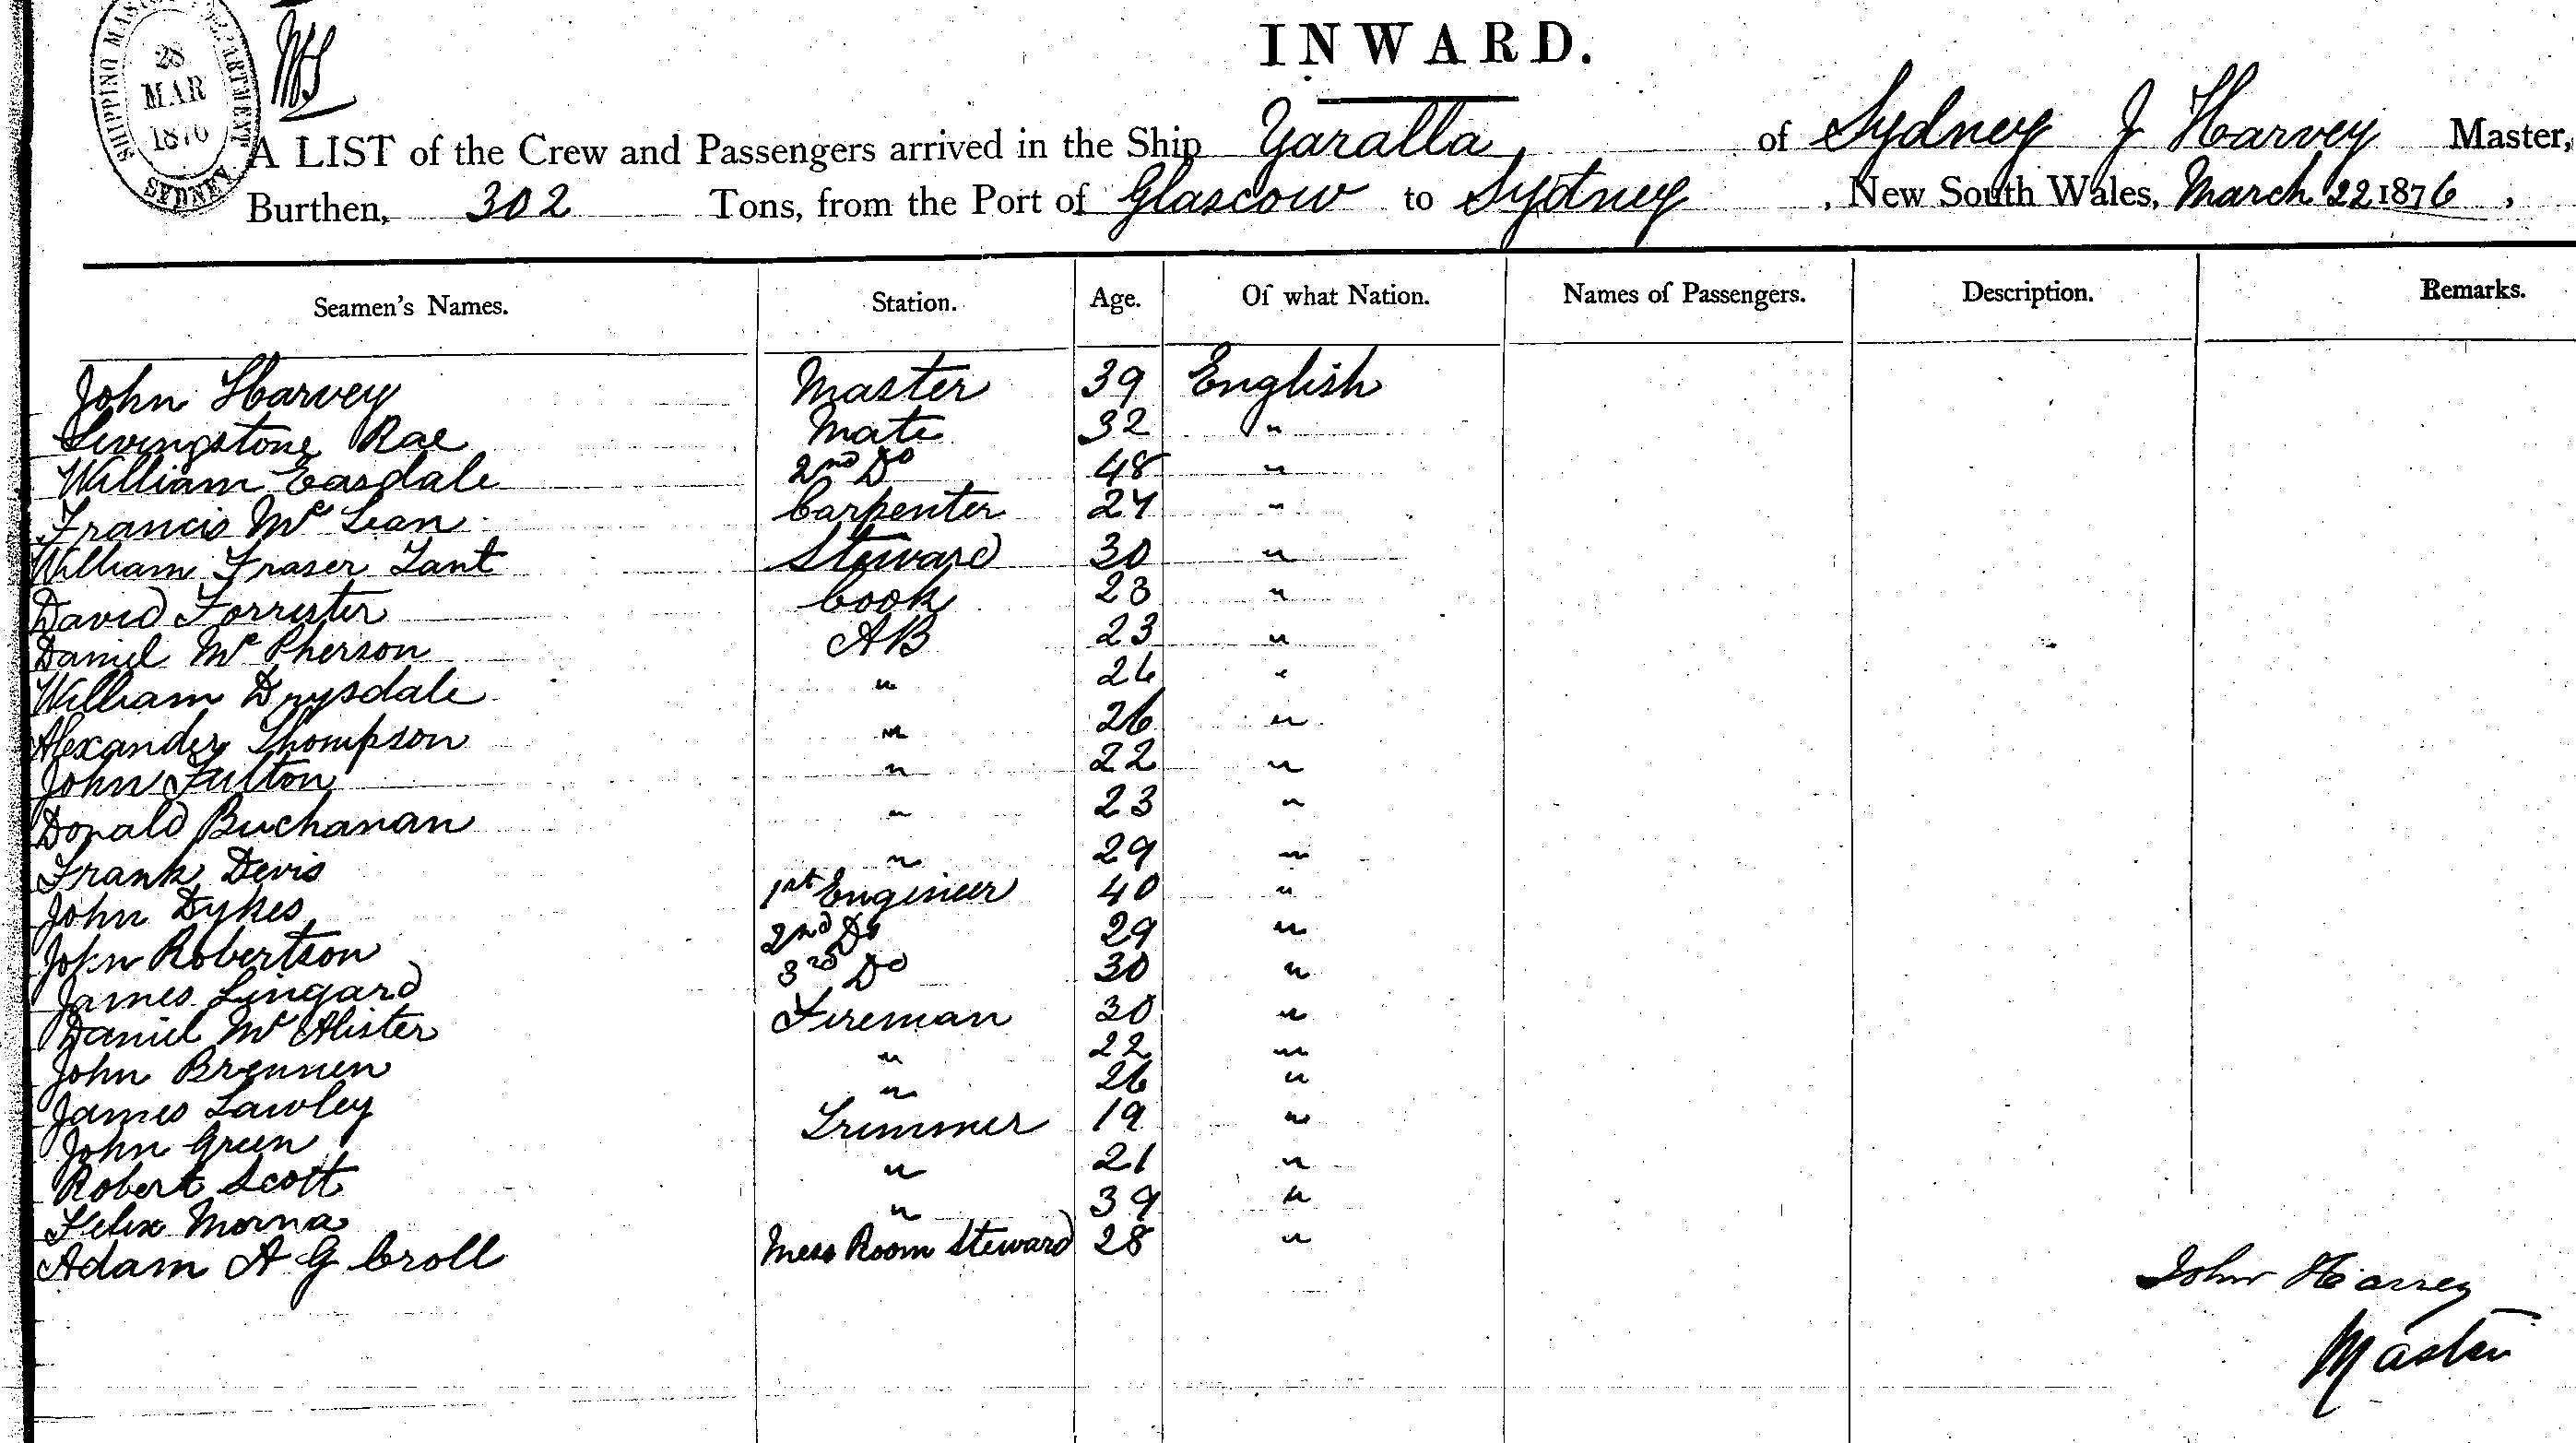 INWARD.
SHIPPING MASTER'S DEPARTMENT
28
MAR
1876
SYDNEY
A LIST of the Crew and Passengers arrived in the Ship Yaralla of Sydney J Harvey Master,
Burthen, 302 Tons, from the Port of Glascow to Sydney, New South Wales, March 22 1876,
Seamen's Names. Station. Age. Of what Nation. Names of Passengers. Description. Remarks.
John Harvey Master 39 English
Livingstone Rae Mate 32 "
William Easdale 2nd Do 48 "
Francis McLean Carpenter 24 "
William Fraser Tant Steward 30 "
David Forrester Cook 23 "
Daniel McPherson AB 23 "
William Drysdale " 26 "
Alexander Thompson " 26 "
John Fulton " 22 "
Donald Buchanan " 23 "
Frank Devis " 29 "
John Dykes 1st Engineer 40 "
John Robertson 2nd Do 29 "
James Lingard 3rd Do 30 "
Daniel McAlister Fireman 30 "
John Brennen " 22 "
James Lawley " 26 "
John Green Trimmer 19 "
Robert Scott " 21 "
Felix Morna " 39 "
Adam A G Croll Mess Room Steward 28 "
John Harvey
Master